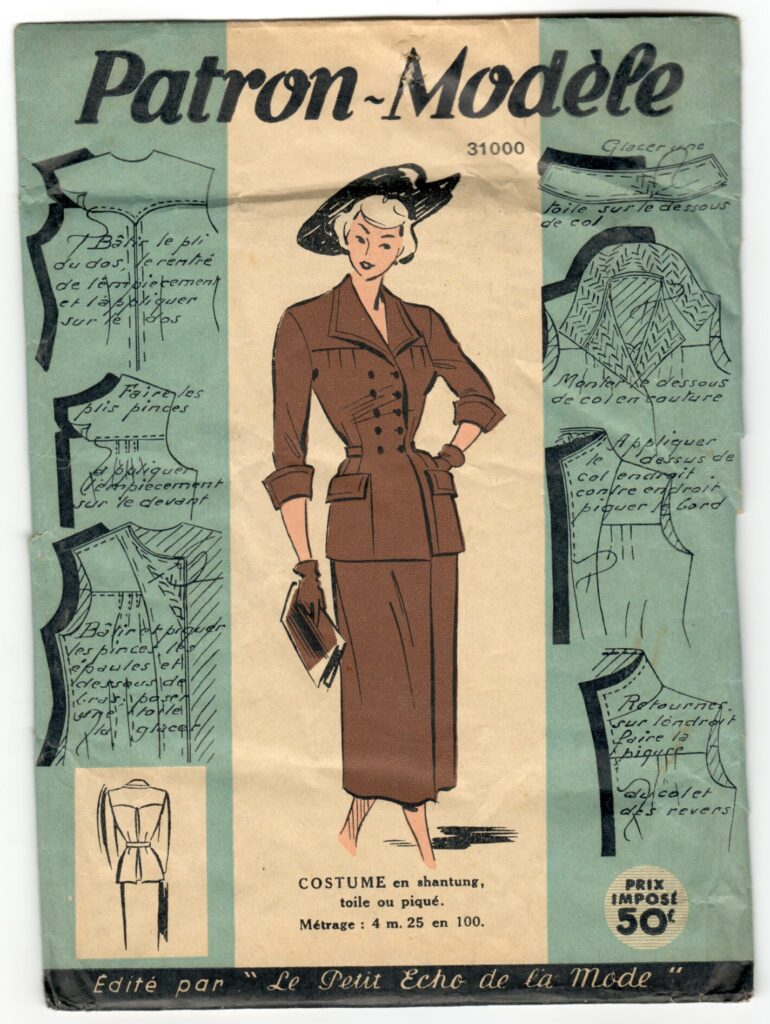 Patron-Modèle
31000
1 Bâtir le pli
du dos, le rentré
de l'empiècement
et l'appliquer
sur le dos
Faire les
plis pinces
appliquer
l'empiècement
sur le devant
Bâtir et piquer
les pinces les
épaules et
dessous de
bras; poser
une toile
la glacer
Glacer une
toile sur le dessous
de col
Monter le dessous
de col en couture
Appliquer
le dessus de
col endroit
contre endroit
piquer le bord
Retourner
sur l'endroit
faire la
piqure
du col et
des revers
COSTUME en shantung,
toile ou piqué.
Métrage : 4 m. 25 en 100.
PRIX
IMPOSÉ
50f
Édité par "Le Petit Echo de la Mode"